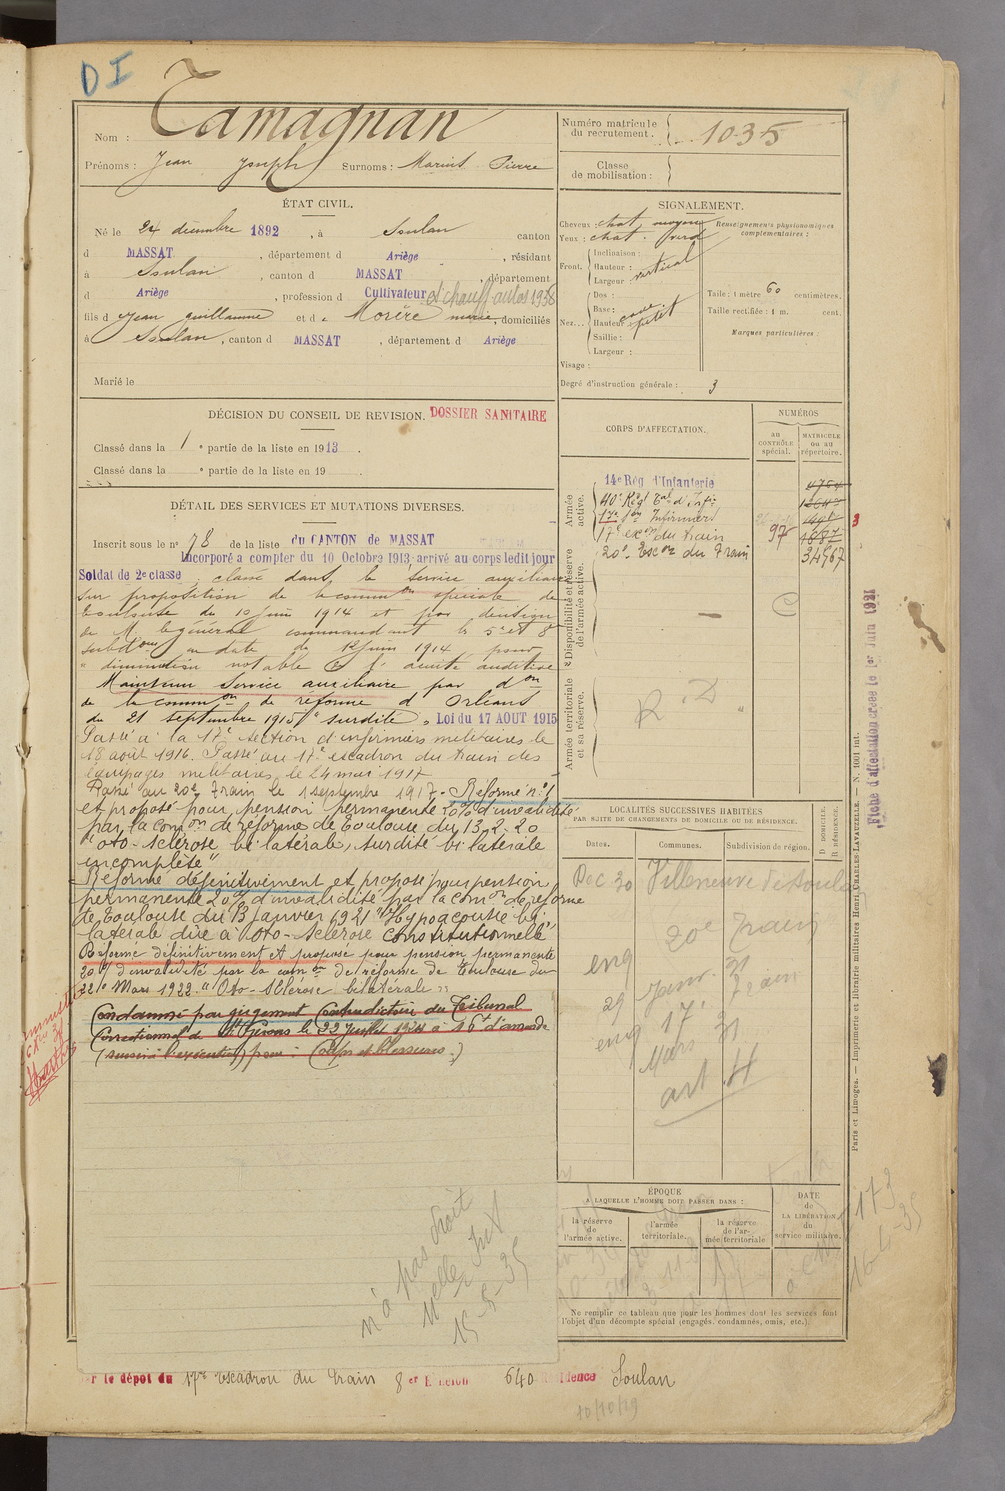 D I
Nom : Tamagnan
Prénoms : Jean Joseph Surnoms : Marius Pierre
Numéro matricule du recrutement. 1035
Classe de mobilisation :
ÉTAT CIVIL.
Né le 24 décembre 1892, à Soulan canton
d MASSAT, département d Ariège, résidant
à Soulan, canton d MASSAT, département
d Ariège, profession d Cultivateur et chauff autos 1938
fils d Jean guillaume et d e Morère marie, domiciliés
à Soulan, canton d MASSAT, département d Ariège
Marié le
SIGNALEMENT.
Cheveux : chat. moyen
Yeux : chat. foncé
Renseignements physionomiques complémentaires :
Front. Inclinaison :
Hauteur : vertical
Largeur
Nez... Dos :
Base : cave
Hauteur petit
Saillie :
Largeur :
Visage :
Taille : 1 mètre 60 centimètres.
Taille rectifiée : 1 m. cent.
Marques particulières :
Degré d'instruction générale : 3
DÉCISION DU CONSEIL DE REVISION. DOSSIER SANITAIRE
Classé dans la 1 e partie de la liste en 1913.
Classé dans la e partie de la liste en 19 .
DÉTAIL DES SERVICES ET MUTATIONS DIVERSES.
Inscrit sous le nº 78 de la liste du CANTON de MASSAT
Incorporé à compter du 10 Octobre 1913 arrivé au corps ledit jour
Soldat de 2e classe, classé dans le service auxiliaire
sur proposition de la commion spéciale de
Toulouse du 10 Juin 1914 et par décision
de M. le général commandant les 5e et 8e
subdons en date du 12 Juin 1914 pour
"diminution notable de l'acuité auditive"
Maintenu Service auxiliaire par don
de la common de réforme d'Orléans
du 21 septembre 1915 "surdité" Loi du 17 AOUT 1915
Passé à la 17e section d'infirmiers militaires le
18 août 1916. Passé au 17e escadron du train des
équipages militaires le 24 mai 1917
Passé au 20e Train le 1 septembre 1917 - Réformé nº 1
et proposé pour pension permanente 20% d'invalidité
par la Comon de réforme de Toulouse du 13.2.20
"oto-sclérose bi latérale, surdité bi latérale
incomplète"
Réformé définitivement et proposé pour pension
permanente 20% d'invalidité par la Comon de réforme
de Toulouse du 13 Janvier 1921 "Hypoacousie bi
latérale due à oto-sclérose constitutionnelle"
Réformé définitivement et proposé pour pension permanente
20% d'invalidité par la comon de réforme de Toulouse du
22 Mars 1922. "Oto-Sclérose bilatérale"
Condamné par jugement Contradictoire du Tribunal
Correctionnel de St Girons le 22 Juillet 1924 à 16f d'amende
(sursis à l'exécution) pour : Coups et blessures.)
n'a pas droit
15-8-35
CORPS D'AFFECTATION.
NUMÉROS
au CONTRÔLE spécial.
MATRICULE ou au répertoire.
Armée active.
14e Rég d'Infanterie
40e Régt Tal d'Infie
17e Son Infirmiers
17e escon du train
20e Escon du Train
97
34567
3
Disponibilité et réserve de l'armée active.
Armée territoriale et sa réserve.
R D "
LOCALITÉS SUCCESSIVES HABITÉES
PAR SUITE DE CHANGEMENTS DE DOMICILE OU DE RÉSIDENCE.
Dates.
Communes.
Subdivision de région.
D DOMICILE.
R RÉSIDENCE.
20e Train
Janv. 31
17. Train
Mars 31
art 4
ÉPOQUE
A LAQUELLE L'HOMME DOIT PASSER DANS :
la réserve de l'armée active.
l'armée territoriale.
la réserve de l'armée territoriale
DATE de LA LIBÉRATION du service militaire.
Ne remplir ce tableau que pour les hommes dont les services font
l'objet d'un décompte spécial (engagés, condamnés, omis, etc.).
Fiche d'affectation créée le 1er Juin 1921
Paris et Limoges. — Imprimerie et librairie militaires Henri CHARLES-LAVAUZELLE. — N. 1001 int.
173
le dépôt du 17e Escadron du train 640 Soulan
10/10/19